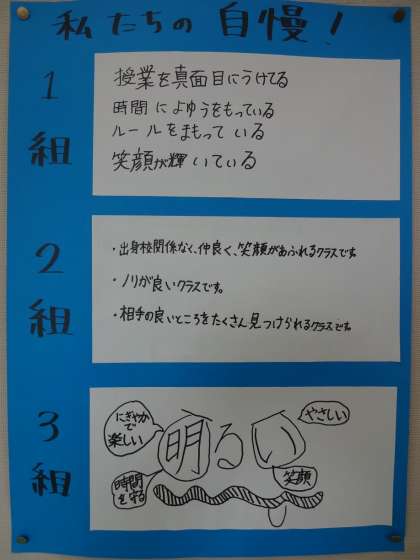 私たちの自慢！
1組
授業を真面目にうけてる
時間によゆうをもっている
ルールをまもっている
笑顔が輝いている
2組
・出身校関係なく、仲良く、笑顔があふれるクラスです。
・ノリが良いクラスです。
・相手の良いところをたくさん見つけられるクラスです。
3組
にぎやかで
楽しい
明るい
やさしい
時間
を守る
笑顔